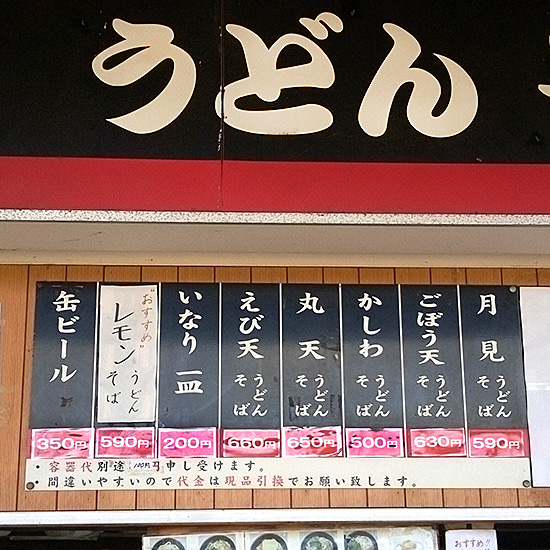 うどん
月見 うどん そば
590円
ごぼう天 うどん そば
630円
かしわ うどん そば
500円
丸天 うどん そば
650円
えび天 うどん そば
660円
いなり一皿
200円
"おすすめ"
レモン うどん そば
590円
缶ビール
350円
・容器代別途 円申し受けます。
・間違いやすいので代金は現品引換でお願い致します。
おすすめ!!